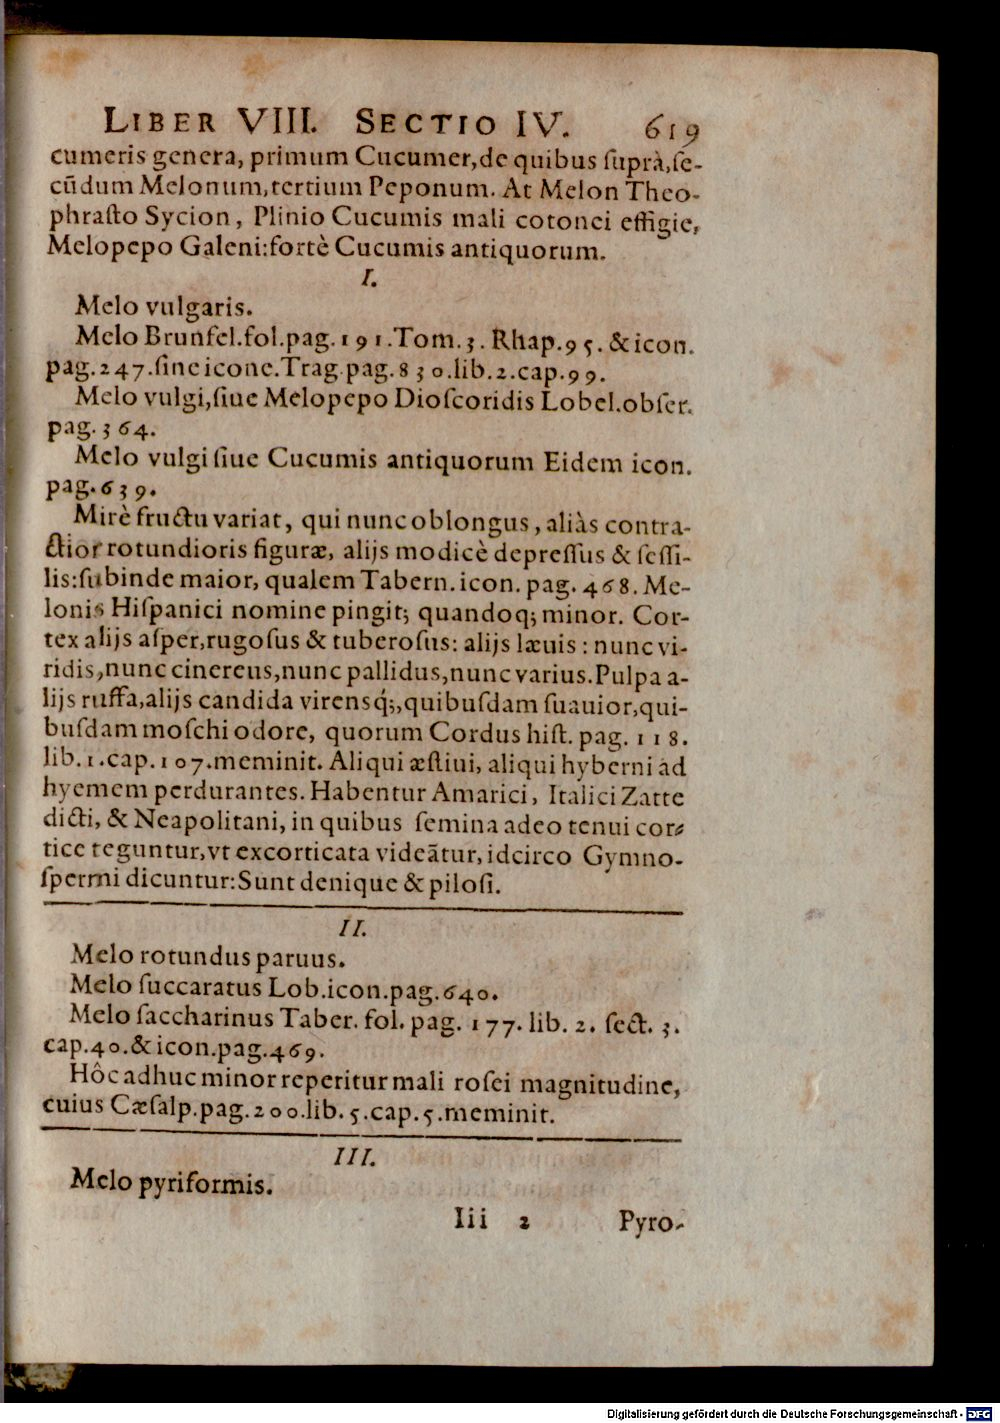 LIBER VIII. SECTIO IV. 619
cumeris genera, primum Cucumer, de quibus ſuprà, ſe-
cũdum Melonum, tertium Peponum. At Melon Theo-
phraſto Sycion, Plinio Cucumis mali cotonei effigie,
Melopepo Galeni: fortè Cucumis antiquorum.
I.
Melo vulgaris.
Melo Brunfel. fol. pag. 191. Tom. 3. Rhap. 95. & icon.
pag. 247. ſine icone. Trag. pag. 830. lib. 2. cap. 99.
Melo vulgi, ſiue Melopepo Dioſcoridis Lobel. obſer.
pag. 364.
Melo vulgi ſiue Cucumis antiquorum Eidem icon.
pag. 639.
Mirè fructu variat, qui nunc oblongus, aliàs contra-
ctior rotundioris figuræ, alijs modicè depreſſus & ſeſſi-
lis: ſubinde maior, qualem Tabern. icon. pag. 468. Me-
lonis Hiſpanici nomine pingit; quandoq; minor. Cor-
tex alijs aſper, rugoſus & tuberoſus: alijs læuis: nunc vi-
ridis, nunc cinereus, nunc pallidus, nunc varius. Pulpa a-
lijs ruffa, alijs candida virensq́;, quibuſdam ſuauior, qui-
buſdam moſchi odore, quorum Cordus hiſt. pag. 118.
lib. 1. cap. 107. meminit. Aliqui æſtiui, aliqui hyberni ad
hyemem perdurantes. Habentur Amarici, Italici Zatte
dicti, & Neapolitani, in quibus ſemina adeo tenui cor-
tice teguntur, vt excorticata videãtur, idcirco Gymno-
ſpermi dicuntur: Sunt denique & piloſi.
II.
Melo rotundus paruus.
Melo ſuccaratus Lob. icon. pag. 640.
Melo ſaccharinus Taber. fol. pag. 177. lib. 2. ſect. 3.
cap. 40. & icon. pag. 469.
Hôc adhuc minor reperitur mali roſei magnitudine,
cuius Cæſalp. pag. 200. lib. 5. cap. 5. meminit.
III.
Melo pyriformis.
Iii 2 Pyro-
Digitalisierung gefördert durch die Deutsche Forschungsgemeinschaft - DFG